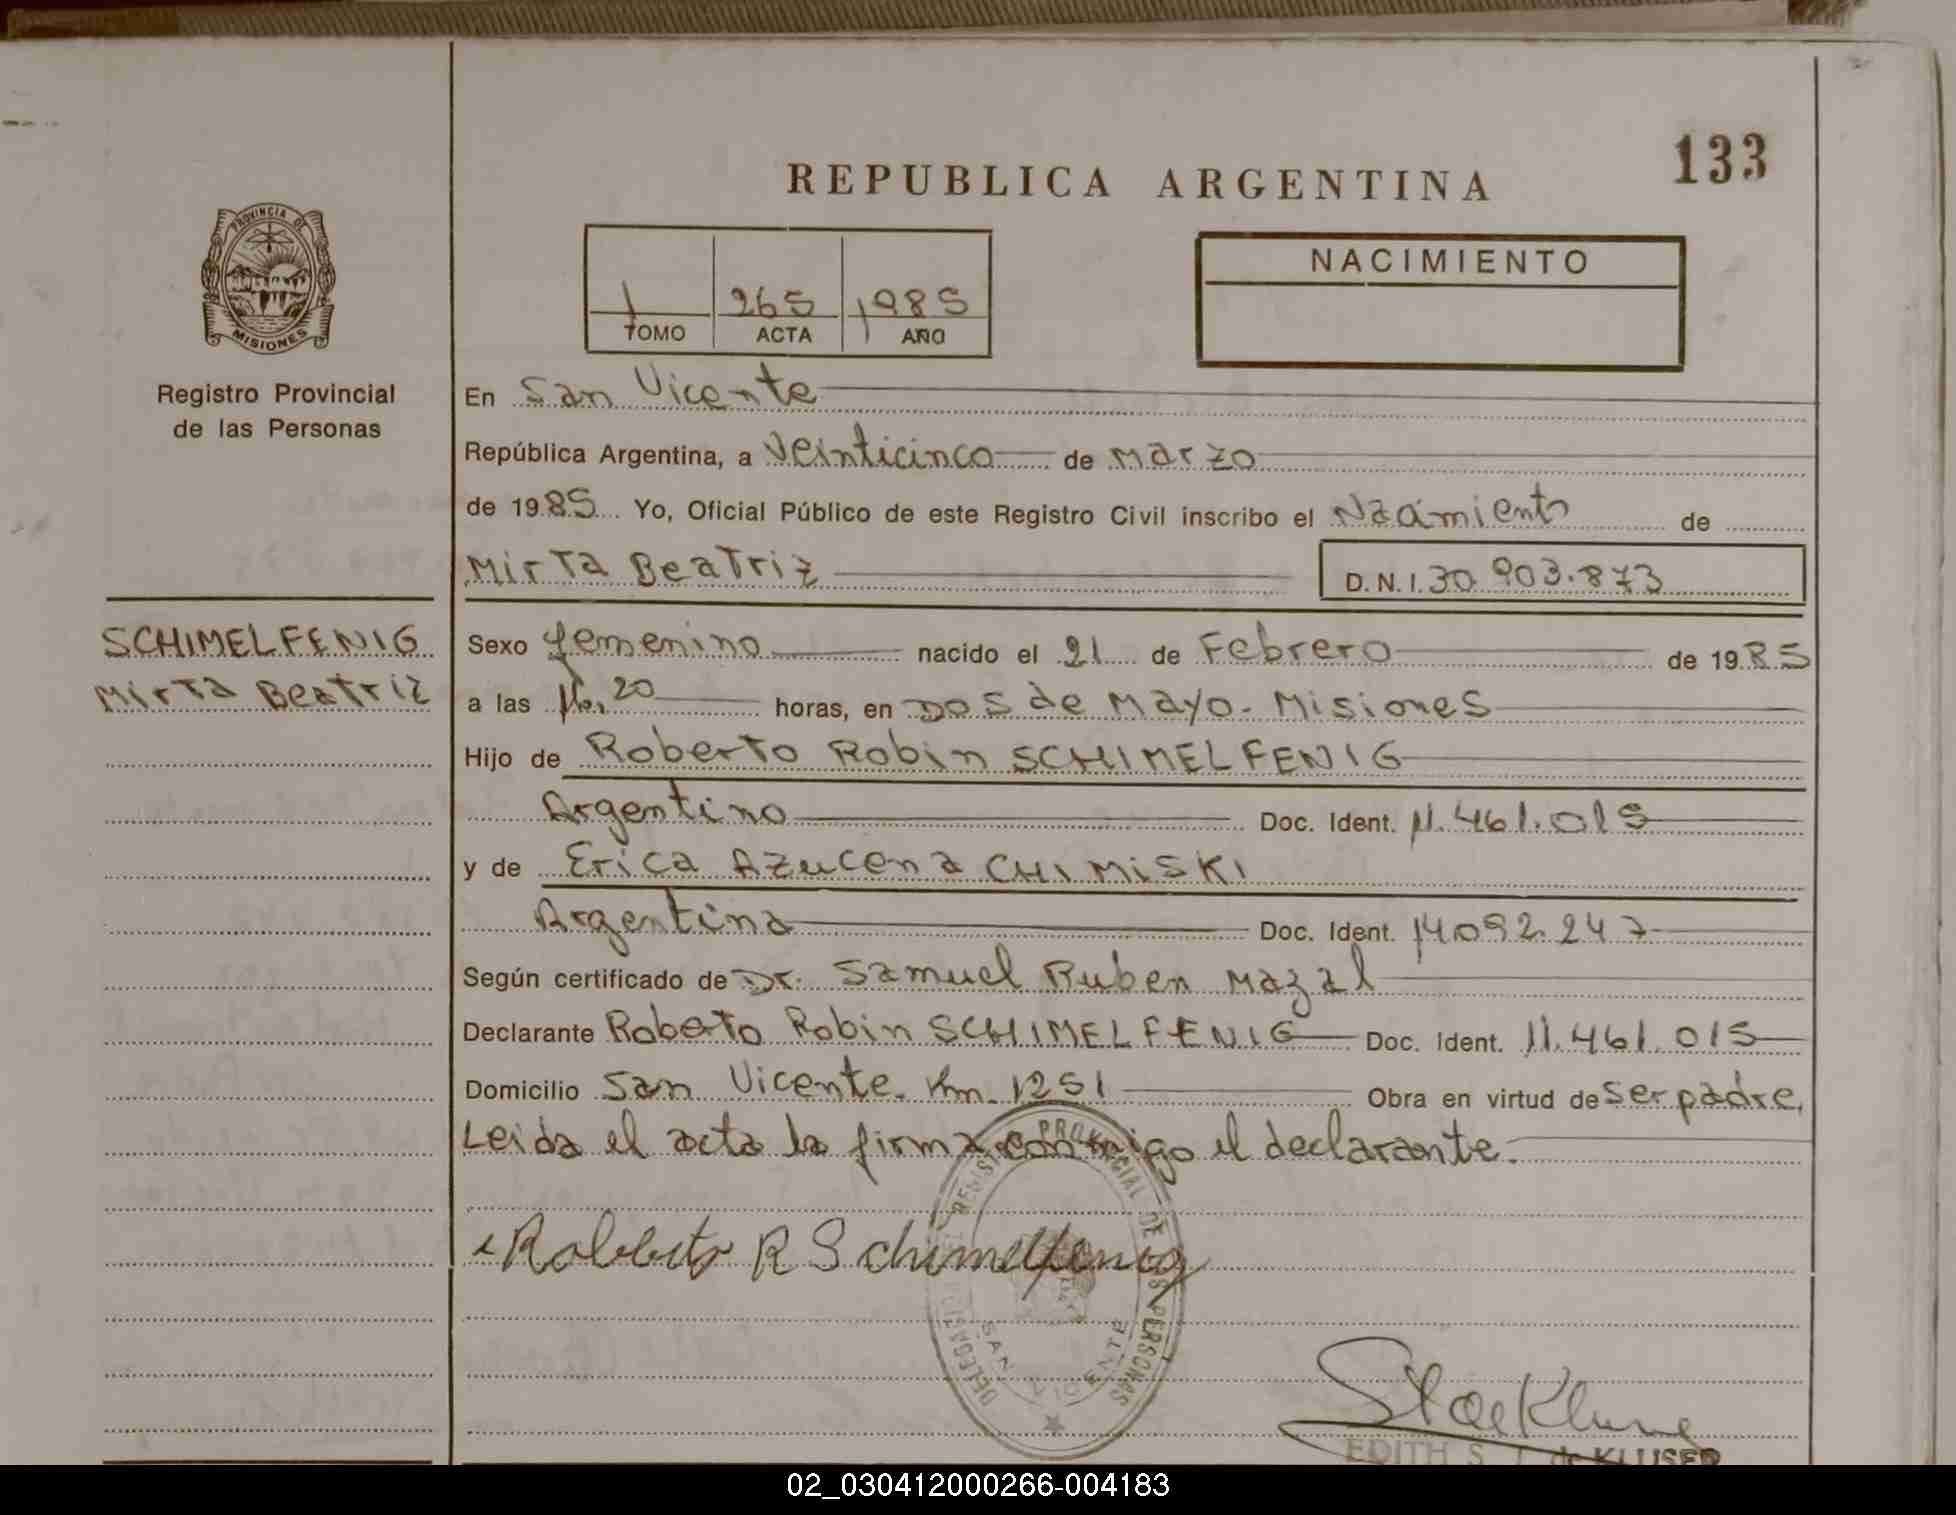 133
REPUBLICA ARGENTINA
PROVINCIA DE
MISIONES
Registro Provincial
de las Personas
1 265 1985
TOMO ACTA AÑO
NACIMIENTO
En San Vicente
República Argentina, a Veinticinco de Marzo
de 1985 Yo, Oficial Público de este Registro Civil inscribo el Nacimiento de
Mirta Beatriz D.N.I. 30.903.873
SCHIMELFENIG
Mirta Beatriz
Sexo femenino nacido el 21 de Febrero de 1985
a las 16,20 horas, en Dos de Mayo. Misiones
Hijo de Roberto Robin SCHIMELFENIG
Argentino Doc. Ident. 11.461.015
y de Erica Azucena CHIMISKI
Argentina Doc. Ident. 14092.247
Según certificado de Dr. Samuel Ruben Mazal
Declarante Roberto Robin SCHIMELFENIG Doc. Ident. 11.461.015
Domicilio San Vicente. Km. 1251 Obra en virtud de ser padre,
Leida el acta la firma conmigo el declarante.
Roberto R Schimelfenig
DELEGACION REGISTRO PROVINCIAL DE LAS PERSONAS
SAN VICENTE
EDITH S. J. de KLUSER
02_030412000266-004183